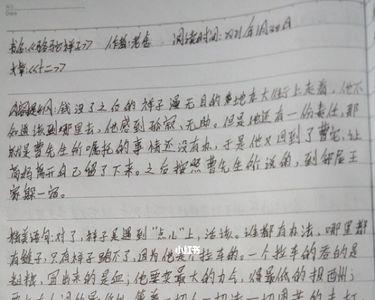 书名:《骆驼祥子》 作者:老舍 阅读时间:2021年1月28日
文章《十二》
内容概问:钱没了之后的祥子漫无目的地在大街上走着,他不
知道该到哪里去,他感到孤寂、无助。但是他还有一份责任,那
就是曹先生的嘱托的事情还没有办,于是他又回到了曹宅,让
高妈离开自己留了下来。之后按照曹先生所说的,到邻居王
家躲一宿。
精美语句:对了,祥子是遇到“点儿”上,活该。谁都有办法,哪里都
有缝子,只有祥子跑不了,因为他是个拉车的。一个拉车的吞的是
粗粮,冒出来的是血;他要卖最大的力气,得最低的报酬;
小红书